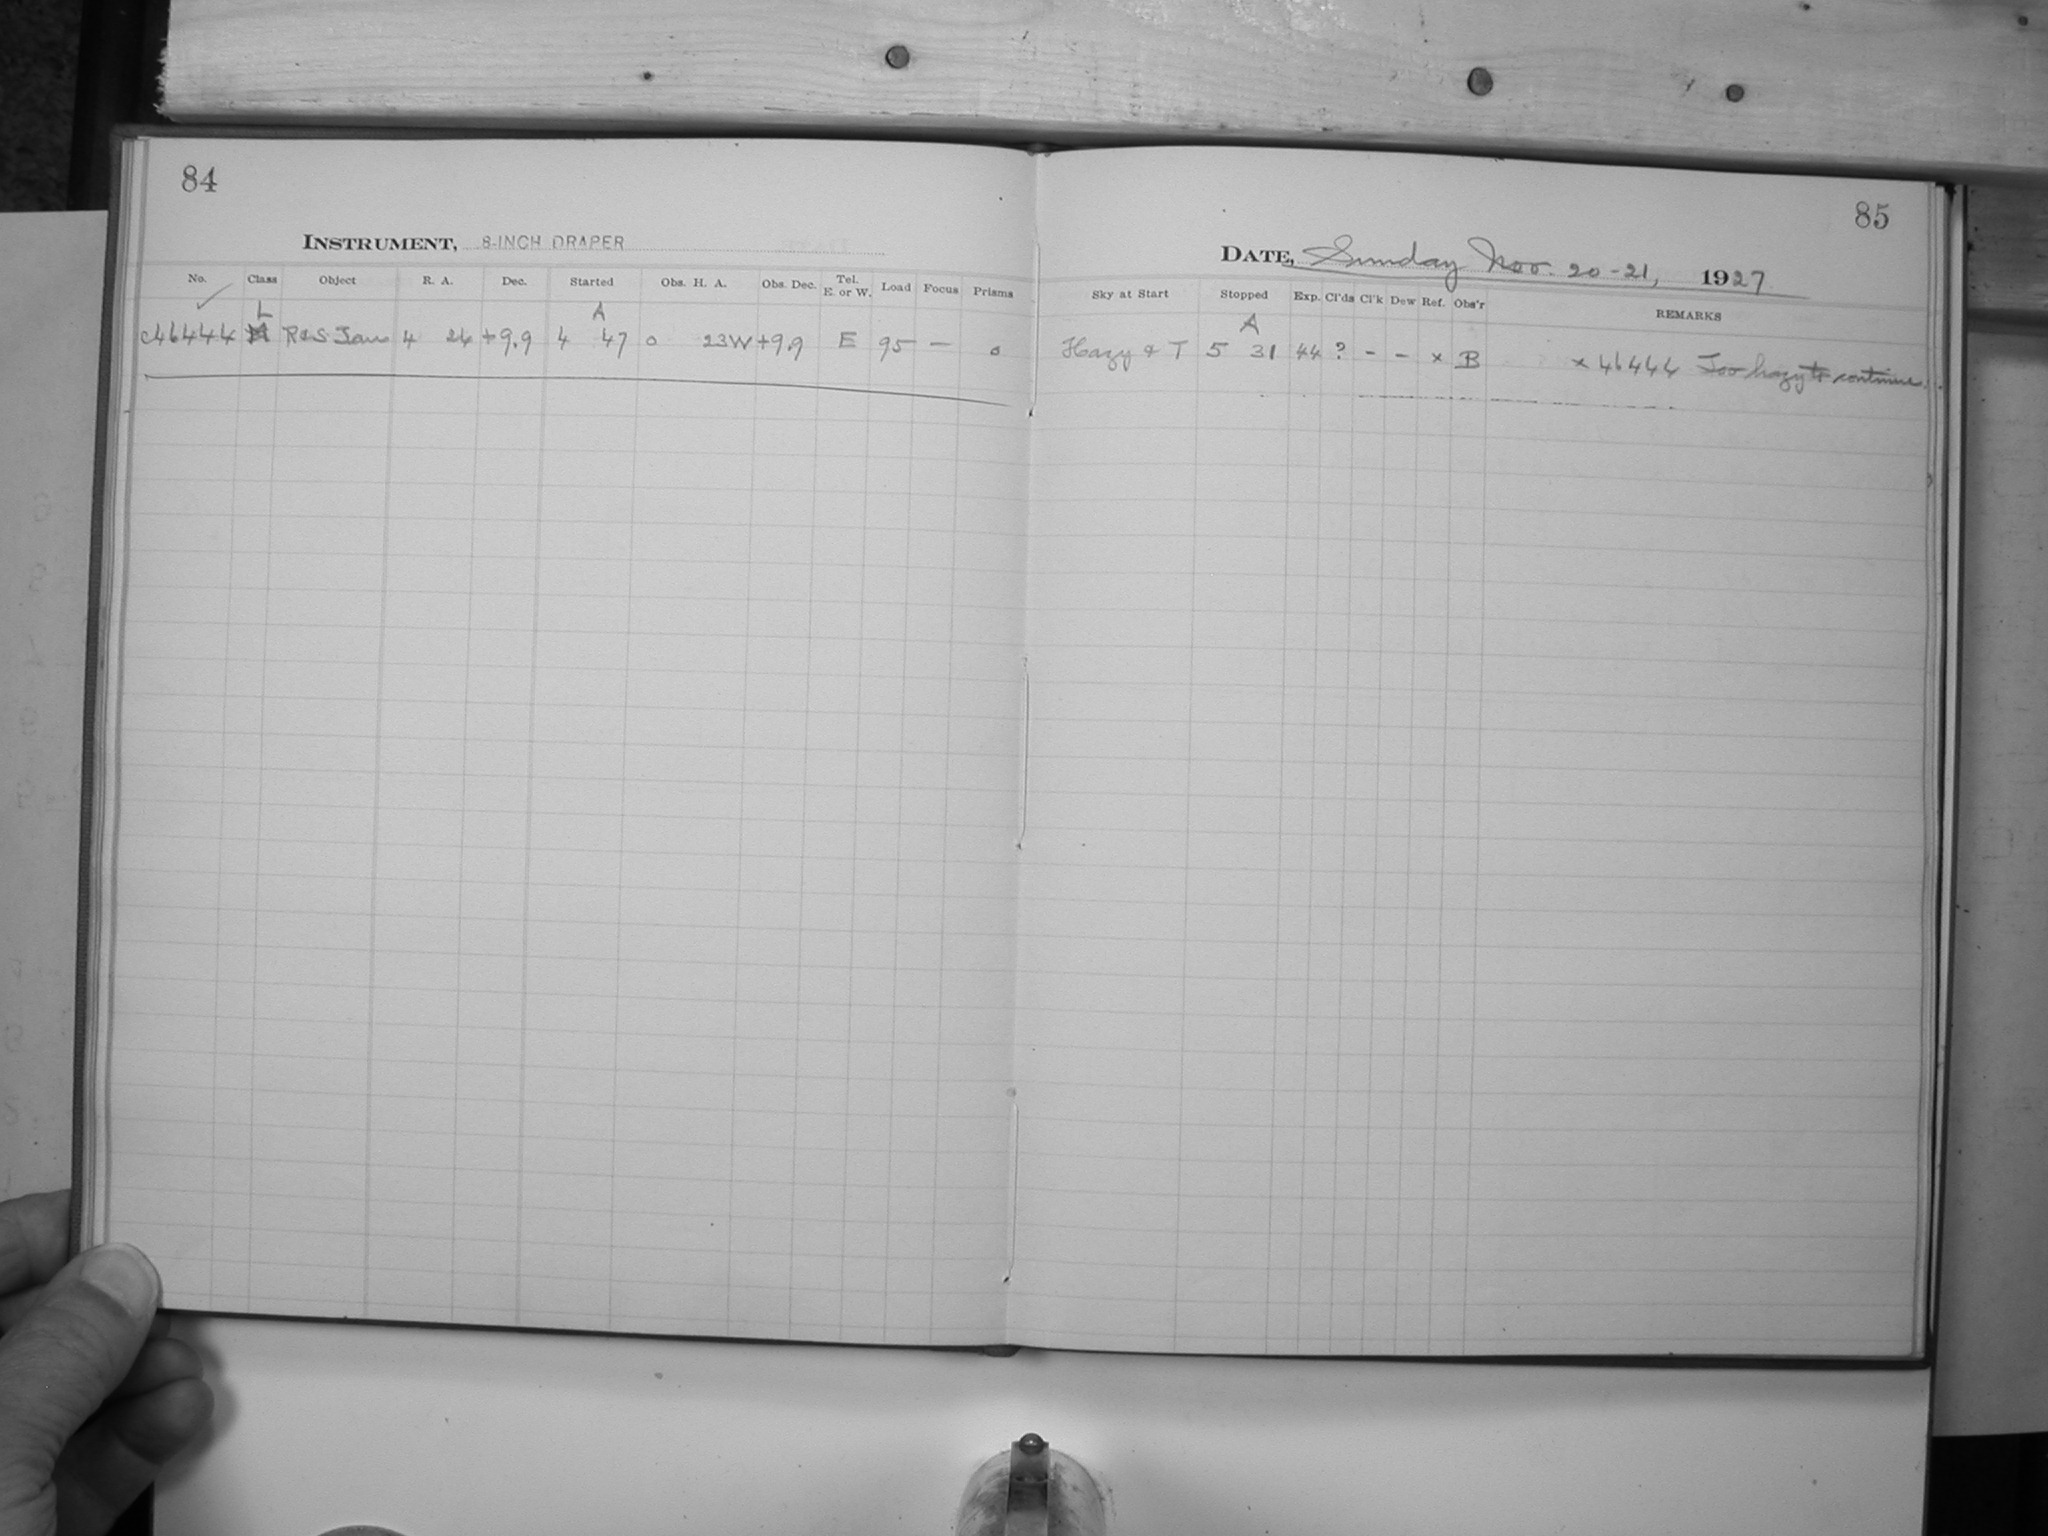 84
INSTRUMENT, 8-INCH DRAPER
No. Class Object R. A. Dec. Started Obs. H. A. Obs. Dec. Tel. E. or W. Load Focus Prisms
L A
c46444 R&S Tau 4 24 +9.9 4 47 0 23W +9.9 E 95 — 0
85
DATE, Sunday Nov. 20-21, 1927
Sky at Start Stopped Exp. Cl'ds Cl'k Dew Ref. Obs'r REMARKS
A
Hazy & T 5 31 44 ? - - x B x 46444 Too hazy to continue.